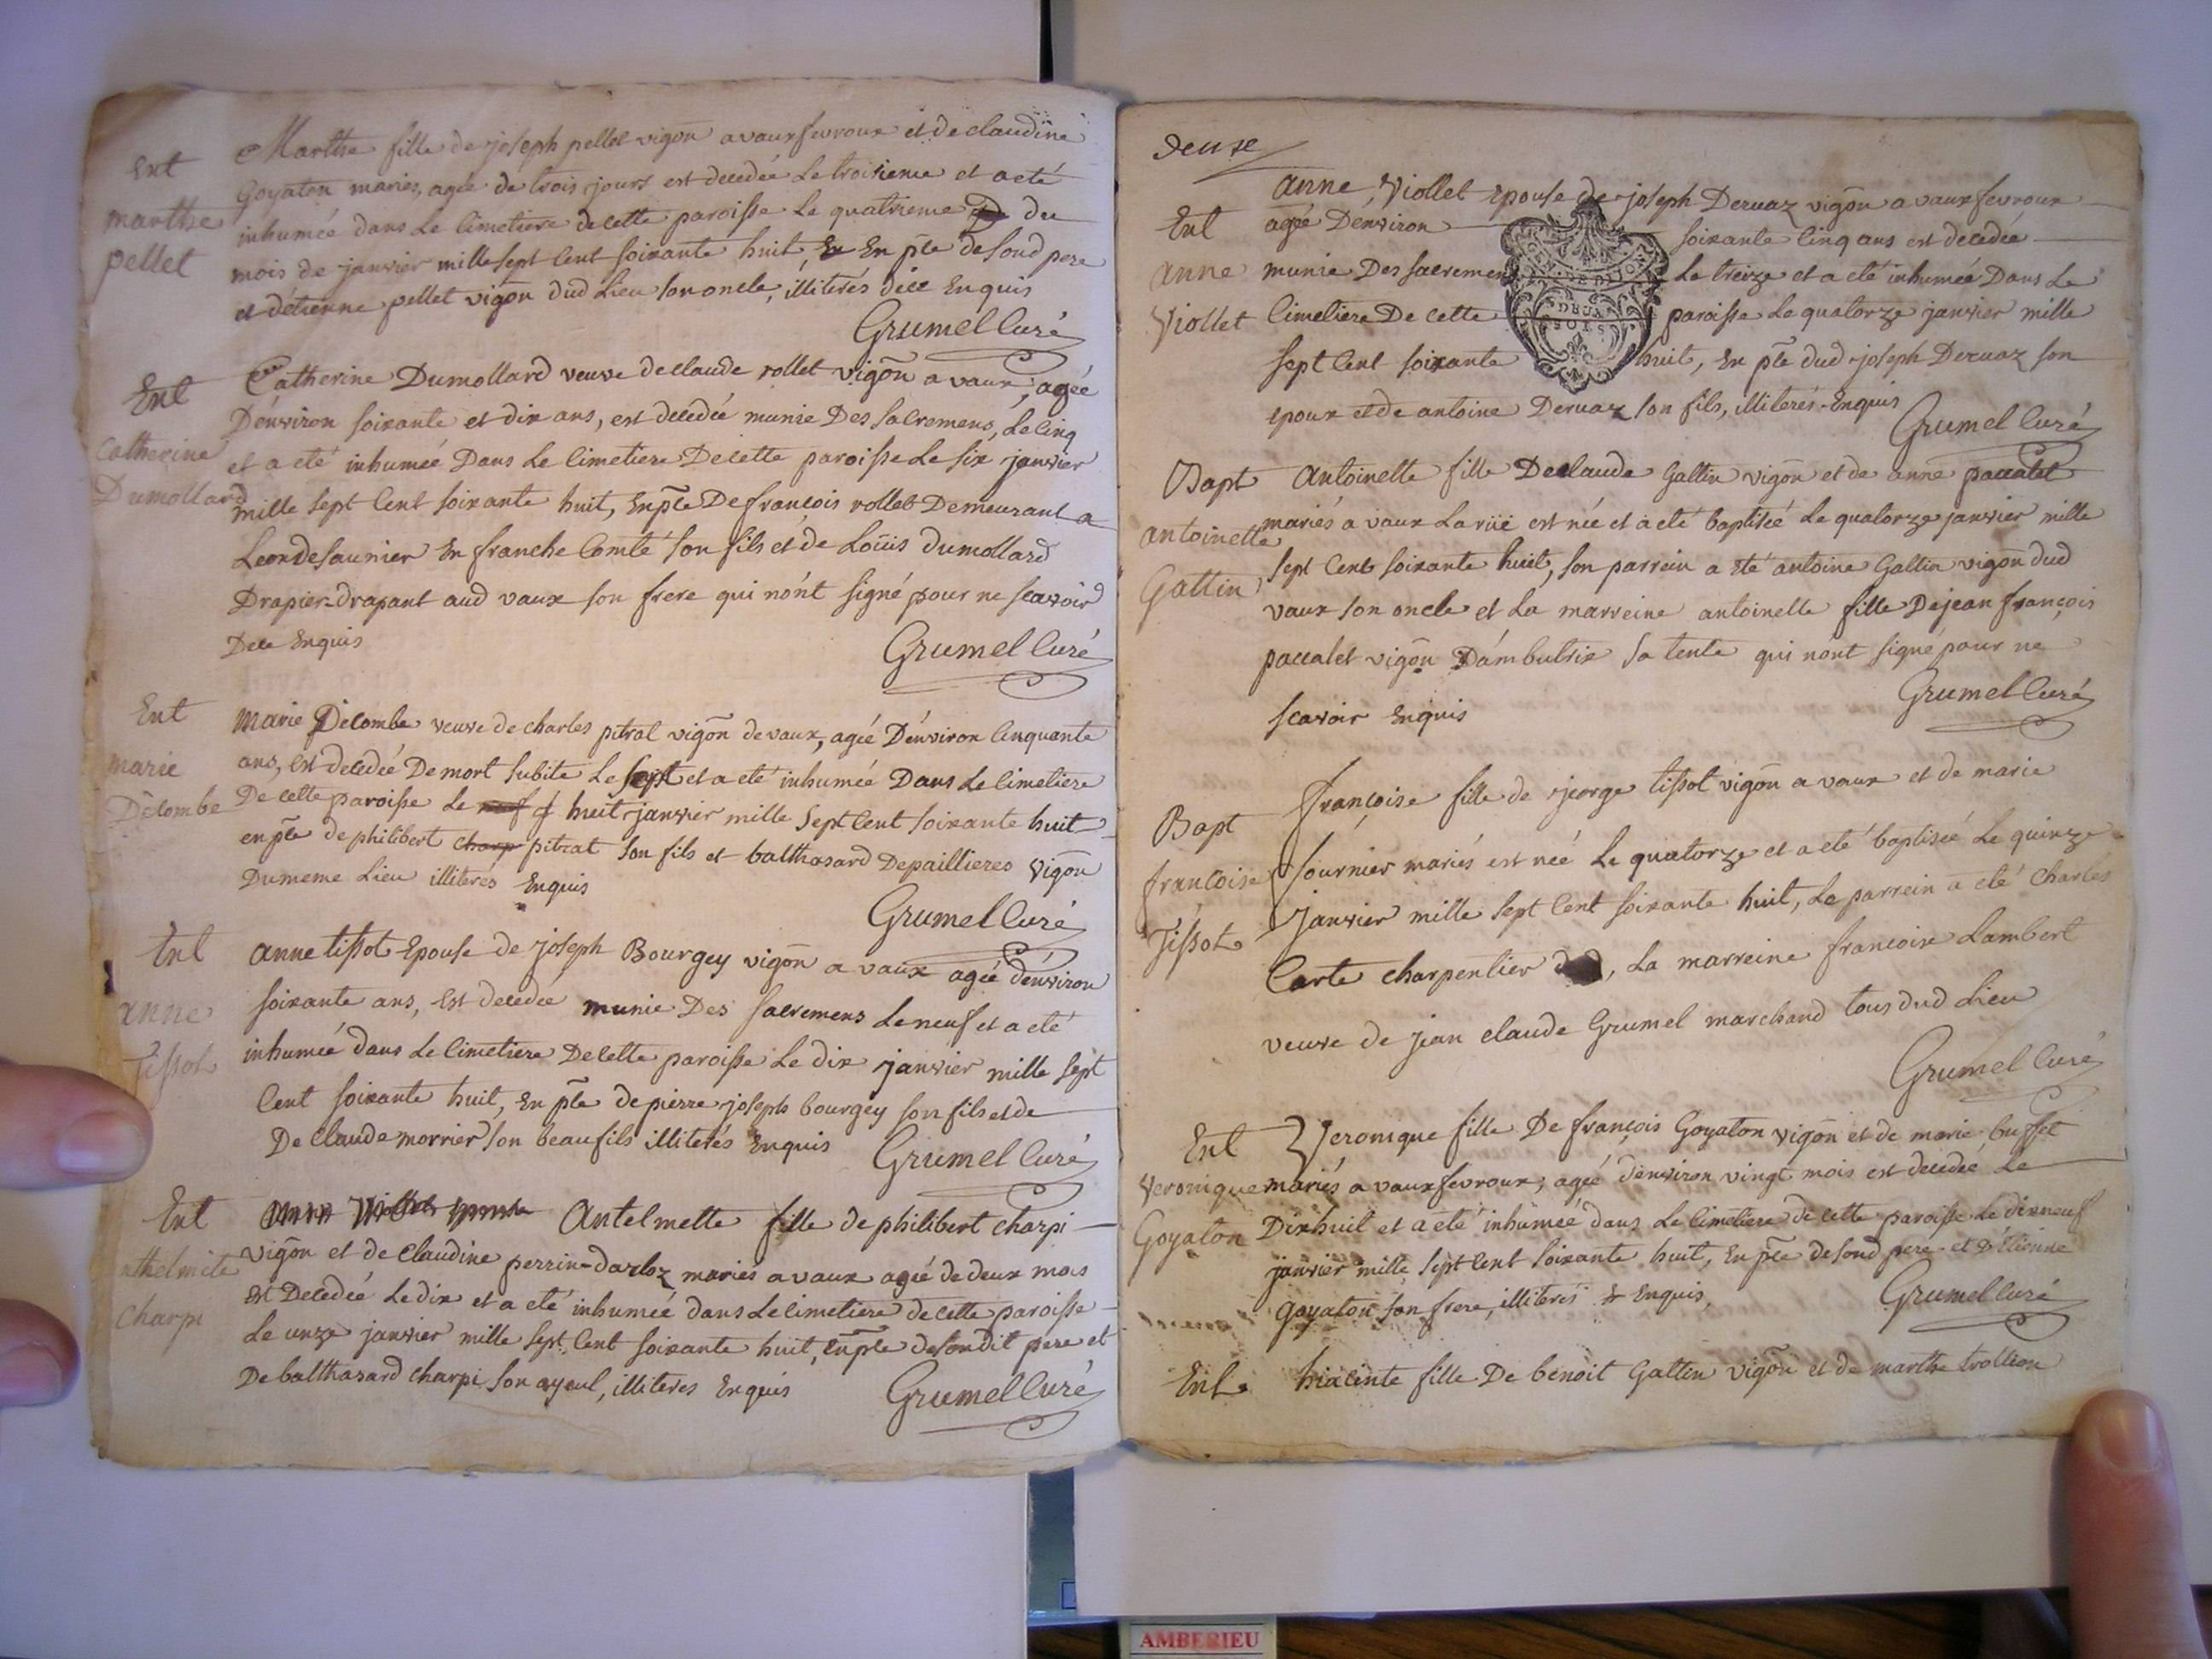 Ent
marthe
pellet
Marthe fille de joseph pellet vigon a vaux fevroux et de claudine
Goyaton mariés, agée de trois jours est decedée Le troisieme et a eté
inhumée dans Le Cimetiere de cette paroisse Le quatrieme du
mois de janvier mille sept Cent soixante huit, En pte de sond pere
et d'étienne pellet vigon dud Lieu son oncle, illiterés dece Enquis
Grumel Curé
Ent
Catherine
Dumollard
Catherine Dumollard veuve de claude rollet vigon a vaux, agée
D'énviron soixante et dix ans, est decedée munie Des sacremens, Le Cinq
et a eté inhumée Dans Le Cimetiere De cette paroisse Le six janvier
mille sept Cent soixante huit, En pte De francois rollet Demeurant a
Leondesaunier En franche Comté son fils et de Loüis Dumollard
Drapier-drapant aud vaux son frere qui nónt signé pour ne scavoir
Dece Enquis
Grumel Curé
Ent
marie
Décombe
Marie Décombe veuve de charles pitrat vigon de vaux, agée D'énviron Cinquante
ans, Est decedée De mort subite Le Sept et a eté inhumée Dans Le Cimetiere
De cette paroisse Le neuf huit janvier mille Sept Cent soixante huit
en pte de philibert charp pitrat son fils et balthasard Depaillieres vigon
Du meme Lieu illiterés Enquis
Grumel Curé
Ent
anne
Tissot
anne tissot Epouse de joseph Bourgey vigon a vaux agée d'énviron
soixante ans, Est decedée munie Des sacremens Le neuf et a eté
inhumée dans Le Cimetiere De cette paroisse Le dix janvier mille Sept
Cent soixante huit, En pte de pierre joseph bourgey son fils et de
De Claude morrier son beau fils illiterés Enquis
Grumel Curé
Ent
nthelmete
Charpi
Antelmette fille de philibert Charpi
vigon et de Claudine perrin-darloz mariés a vaux agée de deux mois
Est Decedée Le dix et a eté inhumée dans Le Cimetiere de cette paroisse
Le unze janvier mille sept Cent soixante huit, En pte de sondit pere et
De balthasard Charpi son ayeul, illiterés Enquis
Grumel Curé
Deuxe
Ent
anne
Viollet
anne Viollet Epouse de joseph Dervaz vigon a vaux fevroux
agée Denviron soixante Cinq ans est decedée
munie Des sacremen Le treize et a eté inhumée Dans Le
Cimetiere De cette paroisse Le quatorze janvier mille
DEUX
SOLS
sept Cent soixante huit, En pte dud joseph Dervaz son
epoux et de antoine Dervaz son fils, illiterés Enquis
Grumel Curé
Bapt
antoinette
Gattin
Antoinette fille De claude Gattin vigon et de anne paccalet
mariés a vaux La rüe est née et a eté baptisée Le quatorze janvier mille
sept Cent soixante huit, son parrein a eté antoine Gattin vigon dud
vaux son oncle et La marreine antoinette fille De jean françois
paccalet vigon D'ambutrix sa tente qui nónt signé pour ne
scavoir Enquis
Grumel Curé
Bapt
françoise
Tissot
françoise fille de george tissot vigon a vaux et de marie
fournier mariés est née Le quatorze et a eté baptisée Le quinze
Janvier mille sept Cent soixante huit, Le parrein a eté Charles
Carte charpentier, La marreine francoise Lambert
veuve de jean claude Grumel marchand tous dud Lieu
Grumel Curé
Ent
Veronique
Goyaton
Veronique fille De françois Goyaton vigon et de marie buffet
mariés a vaux fevroux, agée d'énviron vingt mois est decedée Le
Dixhuit et a eté inhumée dans Le Cimetiere de cette paroisse Le dixneuf
janvier mille sept Cent soixante huit, En pte de sond pere et d'étienne
Goyaton son frere, illiterés Enquis
Grumel Curé
Ent
hiacinte fille De benoit Gattin vigon et de marthe trollion
AMBERIEU